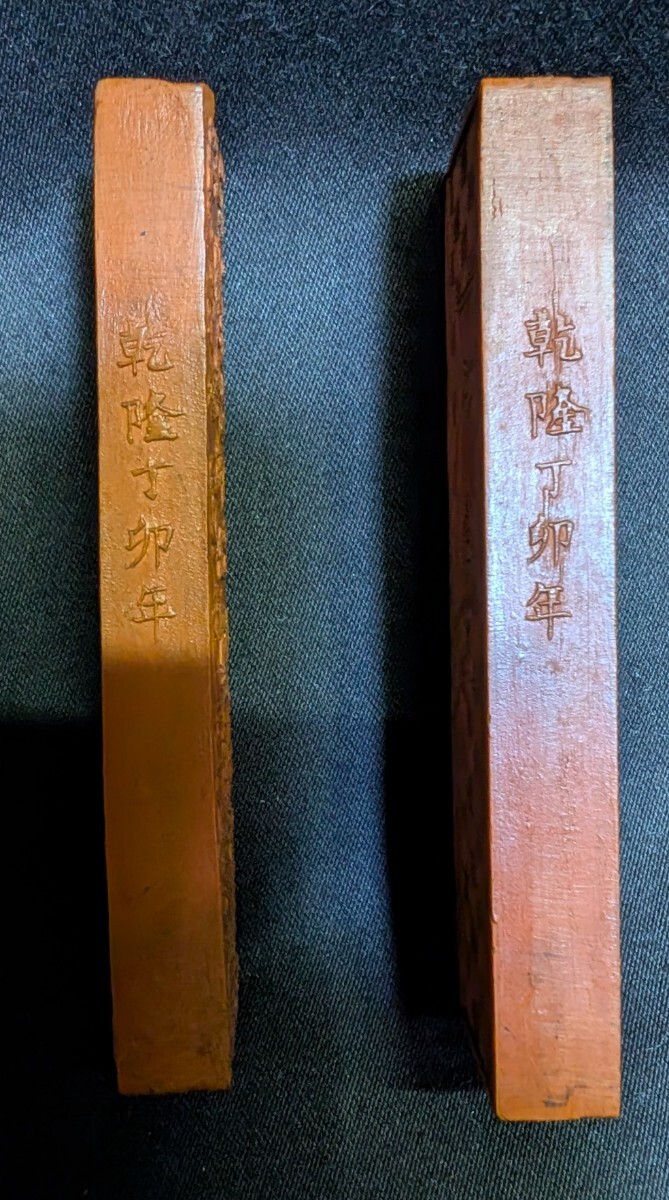 乾隆丁卯年
乾隆丁卯年